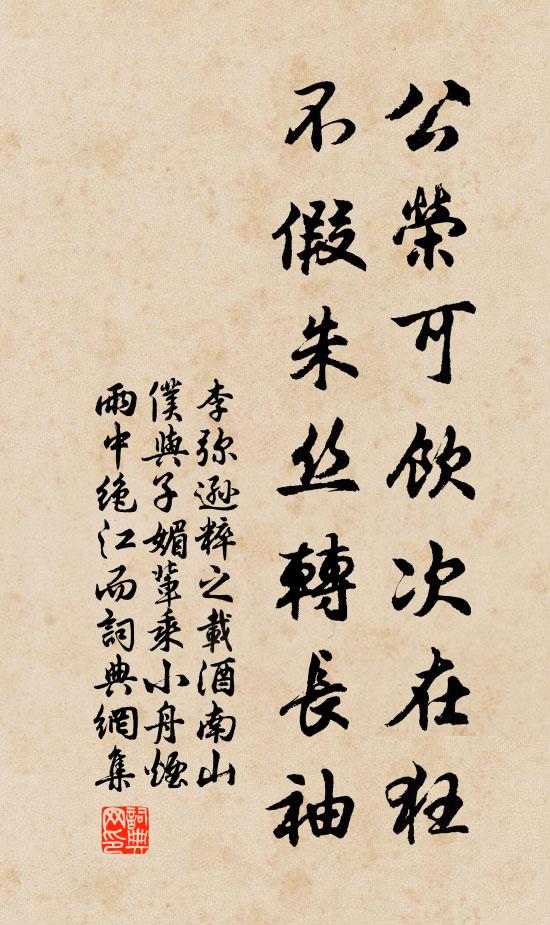 公榮可飲次在狂
不假朱丝轉長袖
李弥遜粹之載酒南山
僕與子媚輩乘小舟煙
雨中绝江而詞典網集
詞典网印